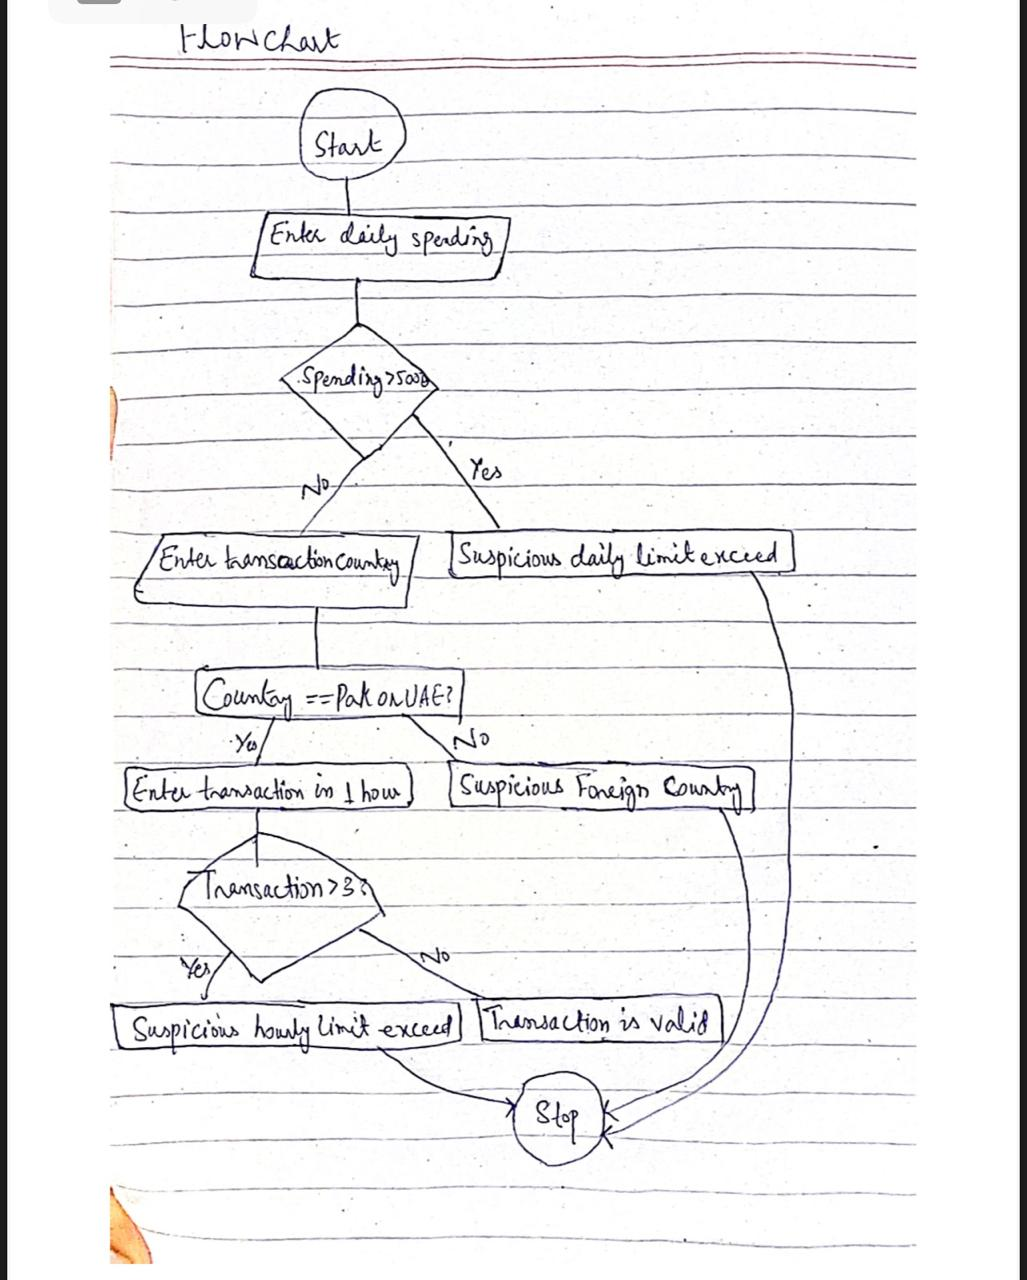 Flowchart
Start
Enter daily spending
Spending >5000
No
Yes
Enter transaction country
Suspicious daily limit exceed
Country == Pak or UAE?
Yes
No
Enter transaction in 1 hour
Suspicious Foreign Country
Transaction >3?
Yes
No
Suspicious hourly limit exceed
Transaction is valid
Stop